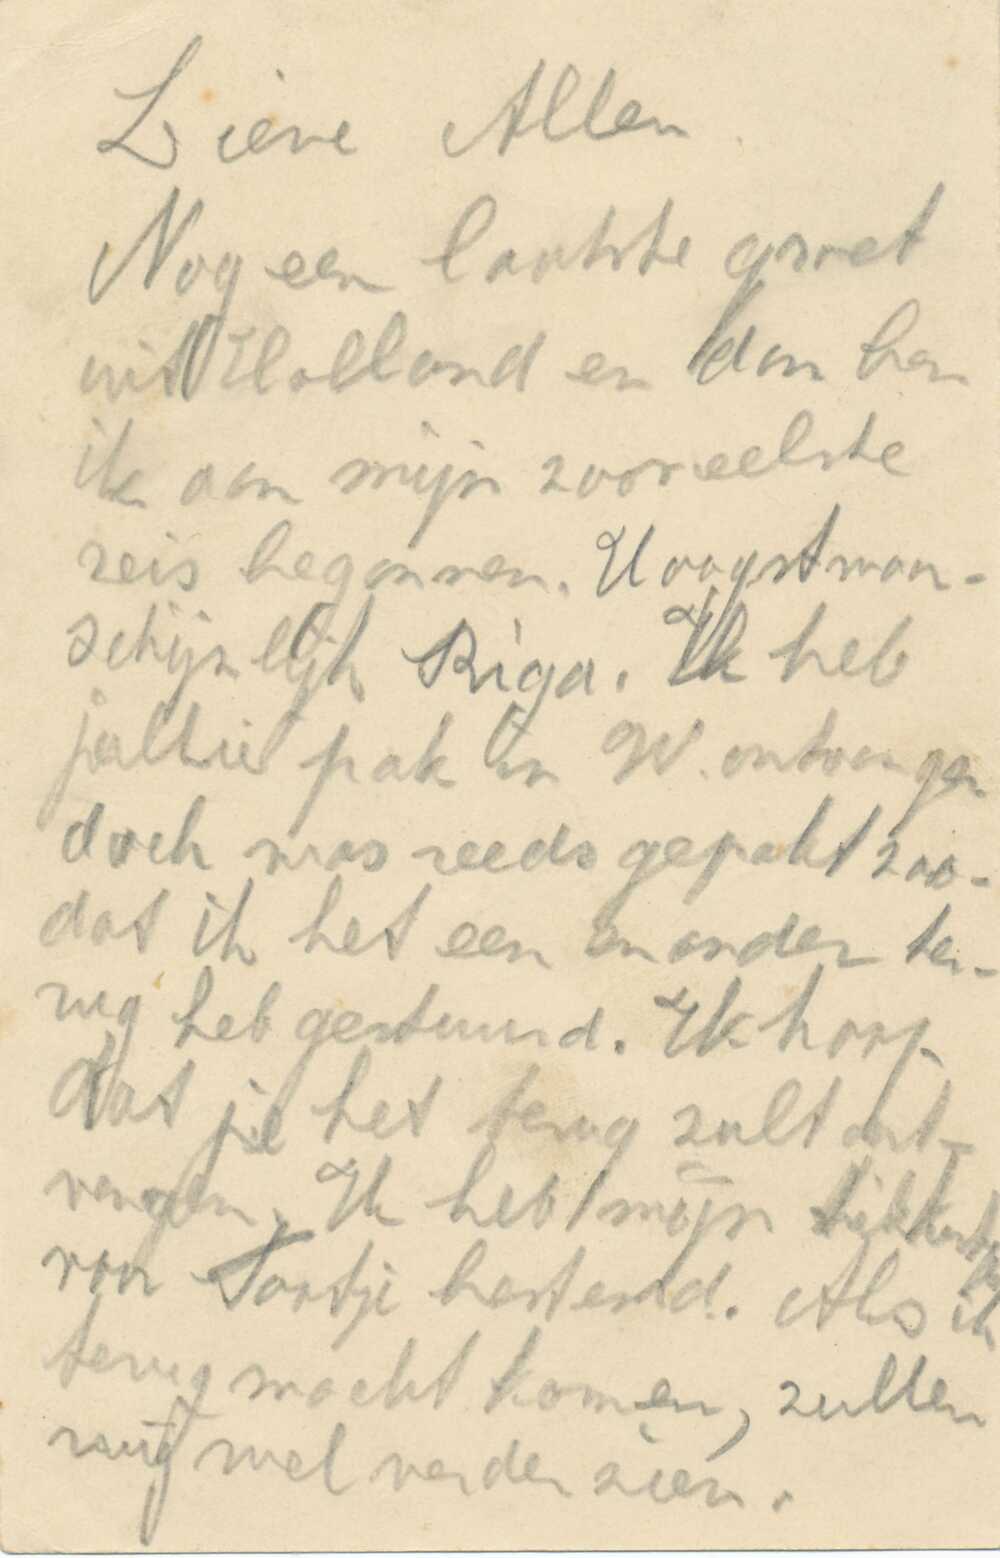 Lieve Allen
Nog een laatste groet
uit Holland en dan ben
ik aan mijn zooveelste
reis begonnen. Hoogstwaar-
schijnlijk Riga. Ik heb
jullie pak in W. ontvangen
doch was reeds gepakt zoo-
dat ik het een en ander te-
rug heb gestuurd. Ik hoop
dat je het terug zult ont-
vangen. Ik heb mijn
van Taatje besteld. Als ik
terug mocht komen, zullen
wij wel verder zien.